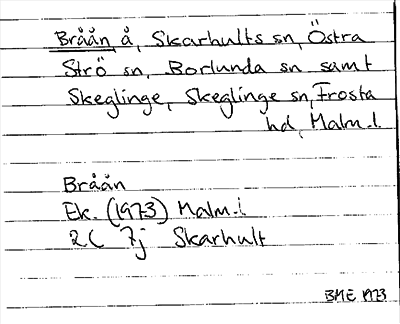 Bråån, å, Skarhults sn, Östra
Strö sn, Borlunda sn samt
Skeglinge, Skeglinge sn, Frosta
hd, Malm.l.
Bråån
Ek. (1973) Malm.l.
2C 7j Skarhult
BME 1973